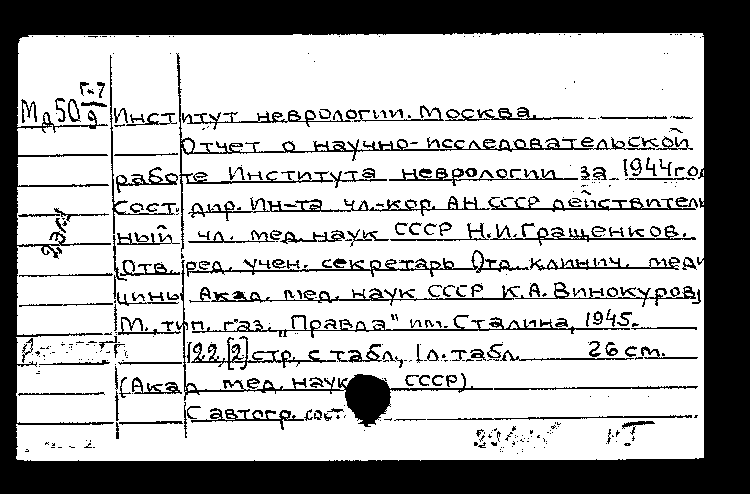 Мд50 Гн7/9 Институт неврологии. Москва.
Отчет о научно-исследовательской
работе Института неврологии за 1944 год
Сост. дир. Ин-та чл.-кор. АН СССР действитель
ный чл. мед. наук СССР Н.И.Гращенков.
[Отв. ред. учен. секретарь Отд. клинич. меди
цины Акад. мед. наук СССР К.А. Винокуров]
М., тип. газ. „Правда" им. Сталина, 1945.
122,[2] стр. с табл., 1 л. табл. 26 см.
(Акад. мед. наук СССР).
С автогр. сост.